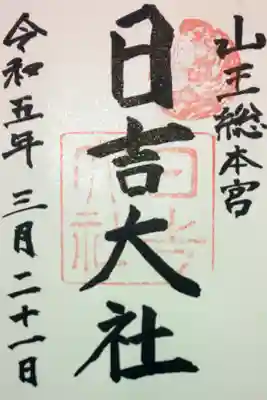 山王総本宮
日吉大社
令和五年三月二十一日